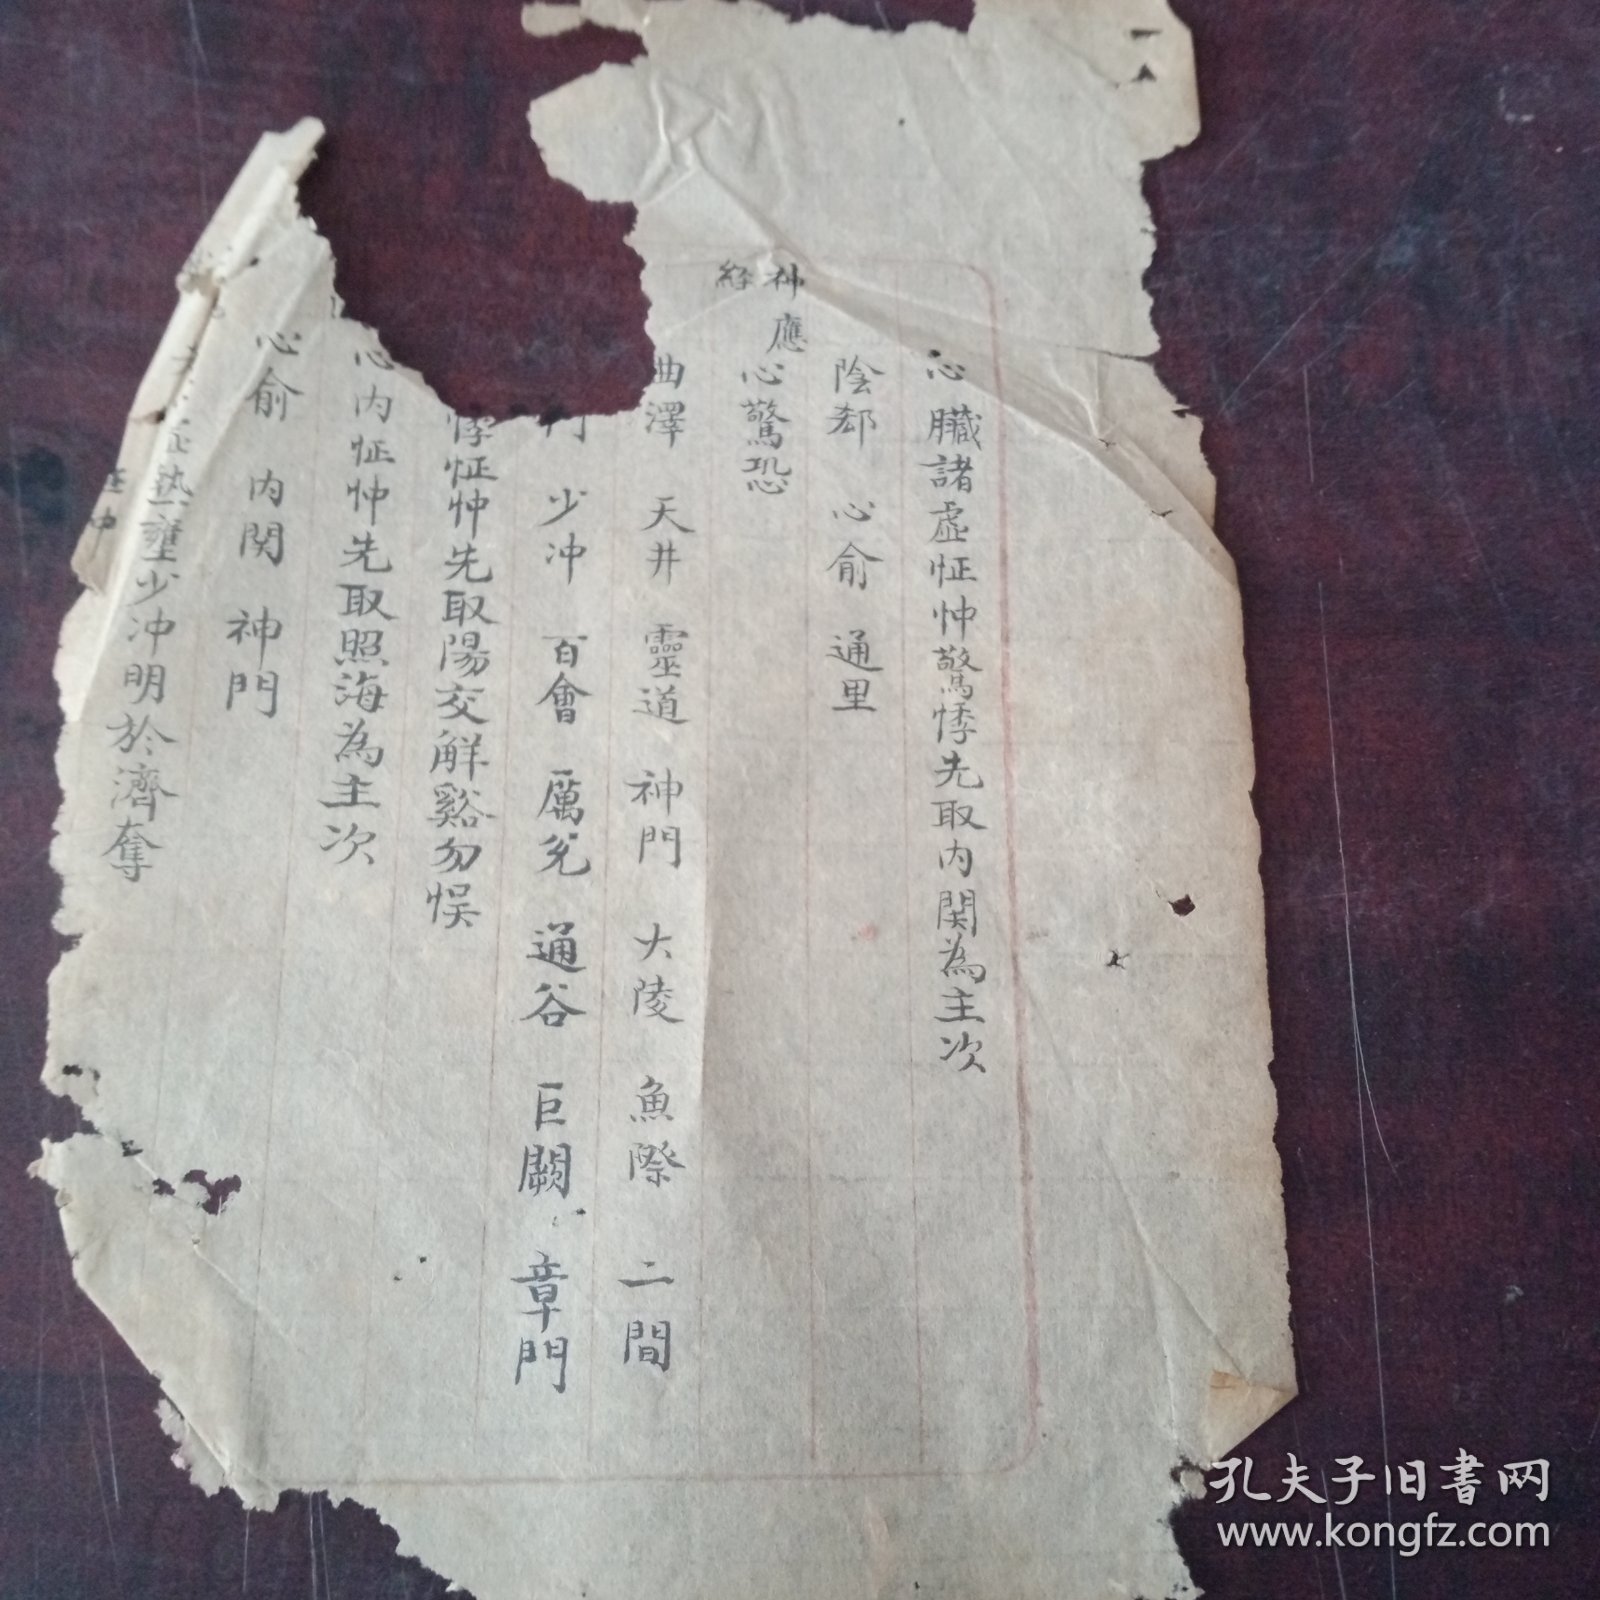 心臟諸虛怔忡驚悸先取内関為主次
陰郄 心俞 通里
神應經
心驚恐
曲澤 天井 靈道 神門 大陵 魚際 二間
門 少冲 百會 厲兌 通谷 巨闕 章門
悸怔忡先取陽交解谿勿悮
心内怔忡先取照海為主次
心俞 内関 神門
虛熱壅少冲明於濟奪
怔中
孔夫子旧書网
www.kongfz.com